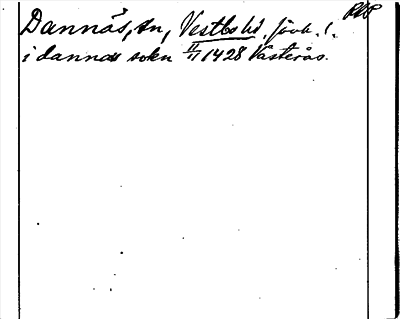 RAP
Dannäs, sn, Vestbo hd, Jönk. l.
i dannäs soken 11/11 1428 Västerås.